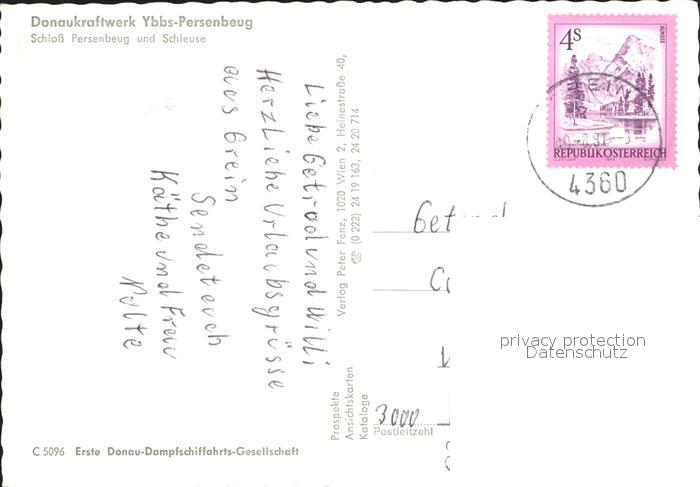 Donaukraftwerk Ybbs-Persenbeug
Schloß Persenbeug und Schleuse
Liebe Getrod und Willi
Herzliche Urlaubsgrüsse
aus Grein
Sendet euch
Käthe und Frau
Nolte
Verlag Peter Fenz, 1020 Wien 2, Heinestraße 40,
☎ (0 222) 24 19 163, 24 20 714
Prospekte
Ansichtskarten
Kataloge
4S
ALMSEE
REPUBLIK ÖSTERREICH
4360
Get
3000
Postleitzahl
privacy protection
Datenschutz
C 5096 Erste Donau-Dampfschiffahrts-Gesellschaft